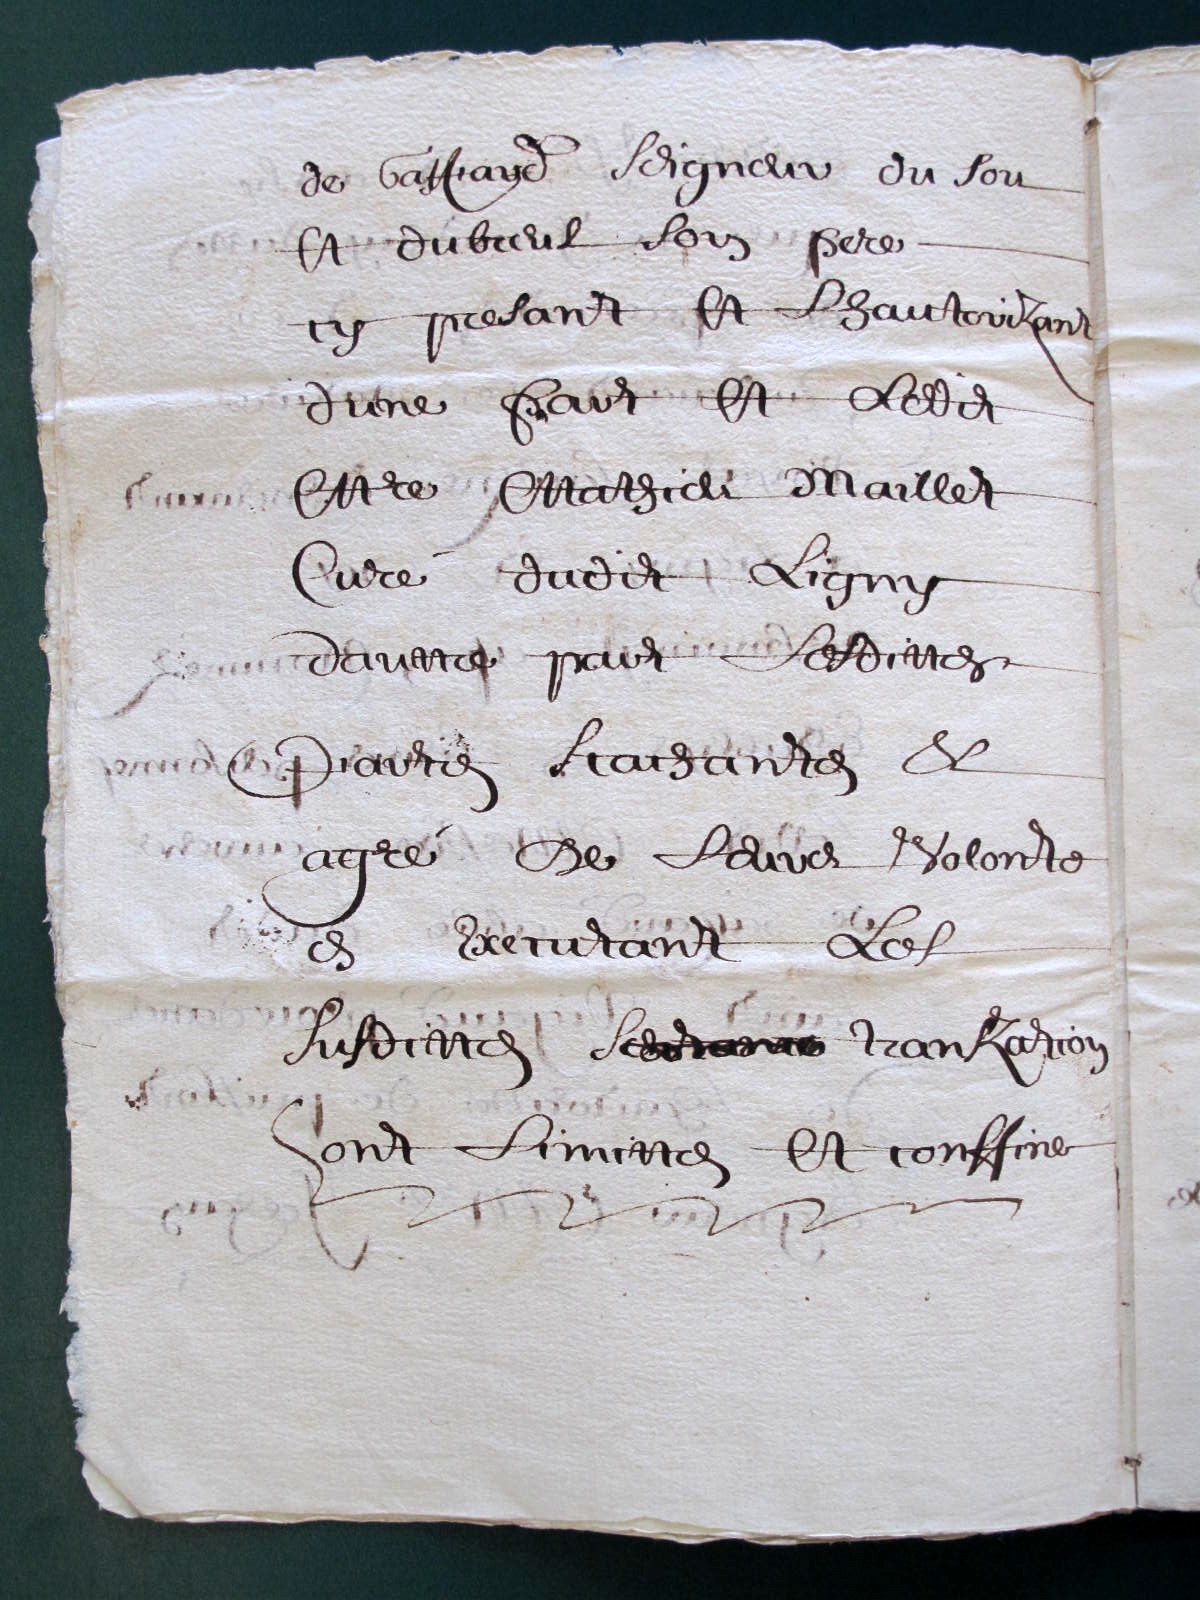 de Vattayd Seigneur du Sou
Et dubreul Son pere
cy presant Et Lhautorizant
dune part Et Ledit
Mre Mathieu Maillet
Curé dudit Ligny
dauttre part Lesdittes
Parties Scachantes &
agré De Leurs Volonte
es Executant Les
Susdittes tranzation
Sont Limittes Et conffine